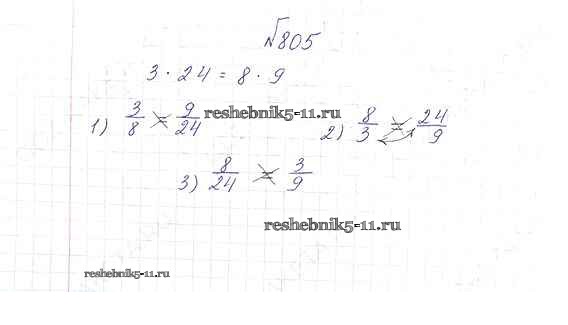 №805
3 · 24 = 8 · 9
1) 3/8 = 9/24
reshebnik5-11.ru
2) 8/3 = 24/9
3) 8/24 = 3/9
reshebnik5-11.ru
reshebnik5-11.ru